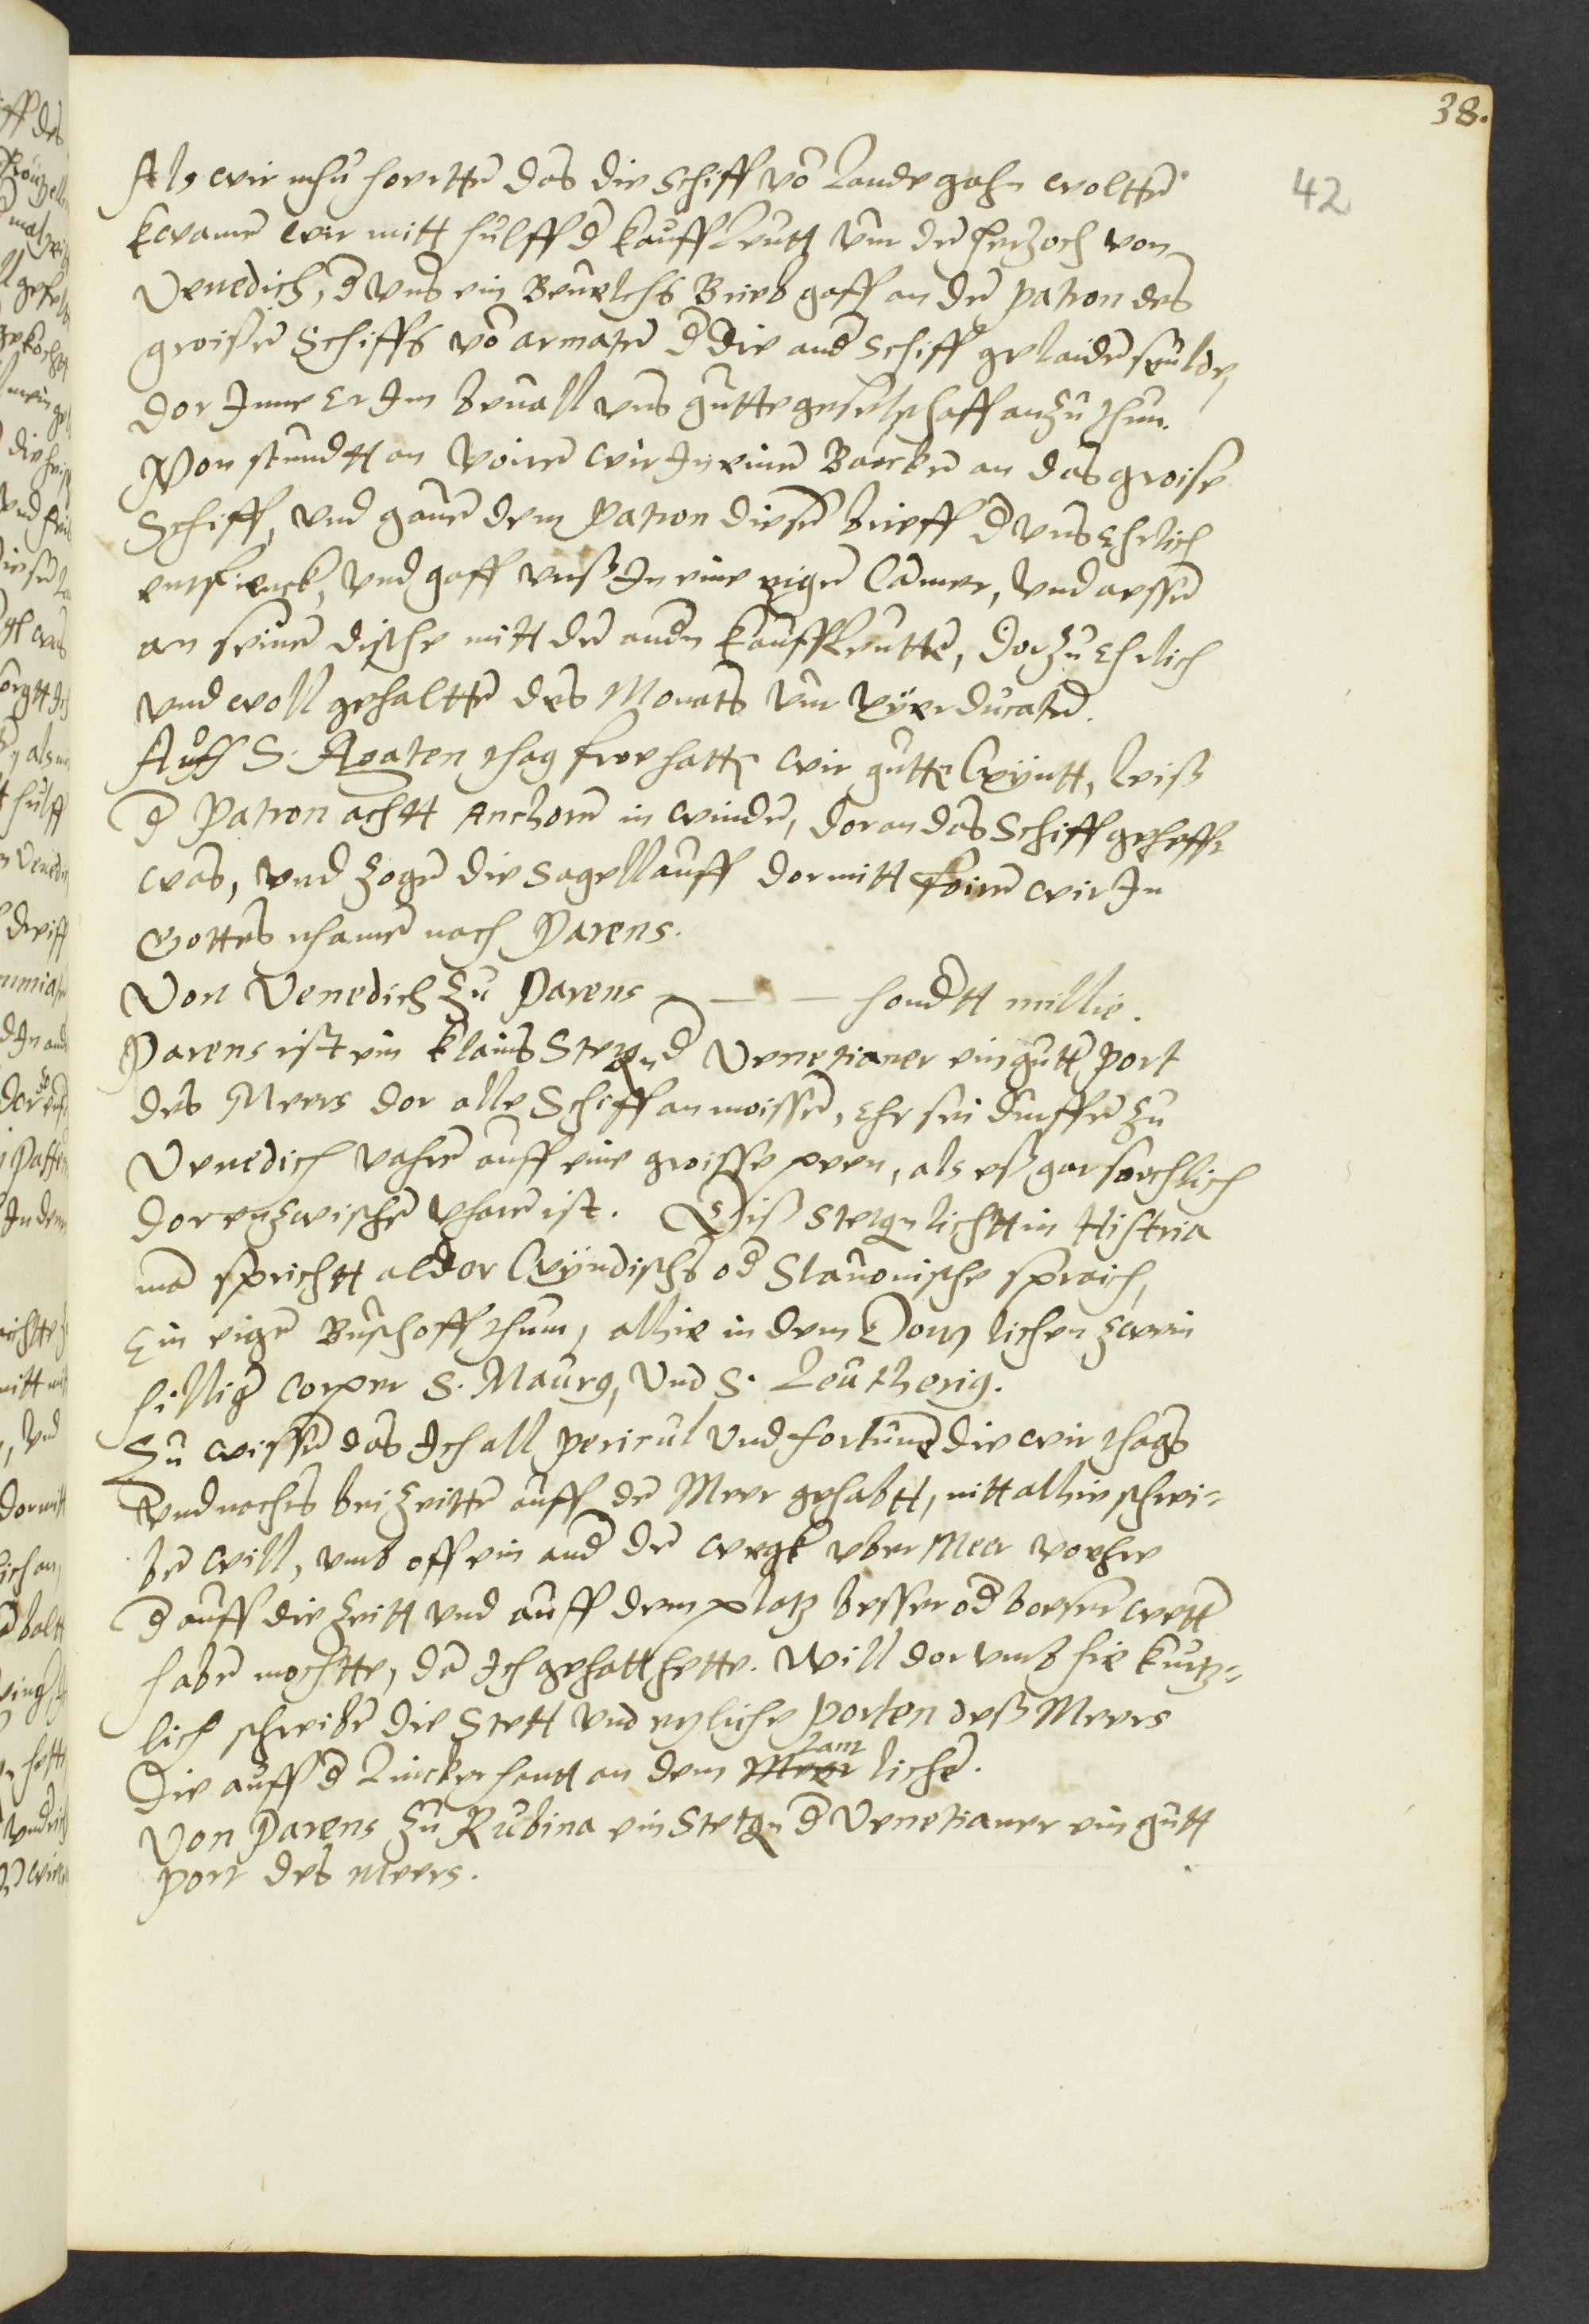 38.
42
Als wir nhu hoertten das die Schiff vō Lande gahn woltten
kwamen wir mitt hulff d Kauffleutt vur den hertzoch von
Venedich, d vns ein Beuelchs Brieb gaff an den patron des
groisen Schiffs vō armaten d die and Schiff gelaiden seulde,
dor Inne er Im beuall vns gutte geselschaff an zu thun.
Von stundtt an voiren wir In einen Barcken an das groise
Schiff, vnd gauen dem Patron diesen brieff d vns Ehrlich
entfienck, vnd gaff vnß In eine eigen Camer, vnd aessen
an seinen dische mitt den andn Kauffleutten, dorzu Ehrlich
vnd woll gehaltten des Monats vur ducaten.
Auff S. Agaten thag froe hatten wir gutte wyntt, leiß
d Patron achtt Anchoren in winden, doran das Schiff geheffte
was, vnd zogen die Sagell auff dormitt foiren wir In
Gottes nhamen nach Parens.
Von Venedich zu Parens — — — hondtt millie.
Parens ist ein klains Stetgn d Venetianer ein gutt port
des Meers dor alle Schiff an moissen, Ehr sei durffen zu
Venedich vahren auff eine groisse peen, als eß gar sorchlich
dorentzwischen vharen ist. Diß Stetgn lichtt in Histria
man sprichtt aldor Wyndischs od Slauonische spraich,
Ein eigen Buschoffthum, alhie in dem Dom lichen zwein
hillige Corper S. Maurg, vnd S. Leutherig.
Zu wissen das Ich all pericul vnd fortunen die wir thags
vnd nachts bei Zeitten auff den Meer gehabtt, nitt alhie schrei-
ben will, vmb off ein and den wegk vber Meer voehre
d auff die Zeitt vnd auff dem platz besser od boeser wett
haben mochtte, dan Ich gehatt hette. Will dorumb hie kurtz-
lich schreiben die Stett vnd etzliche Porten deß Meers
die auff d Lincker hantt an dem Meer Lant lichen.
Von Parens zu Rubina ein Stetgn d Venetianer ein gutt
Port des Meers.